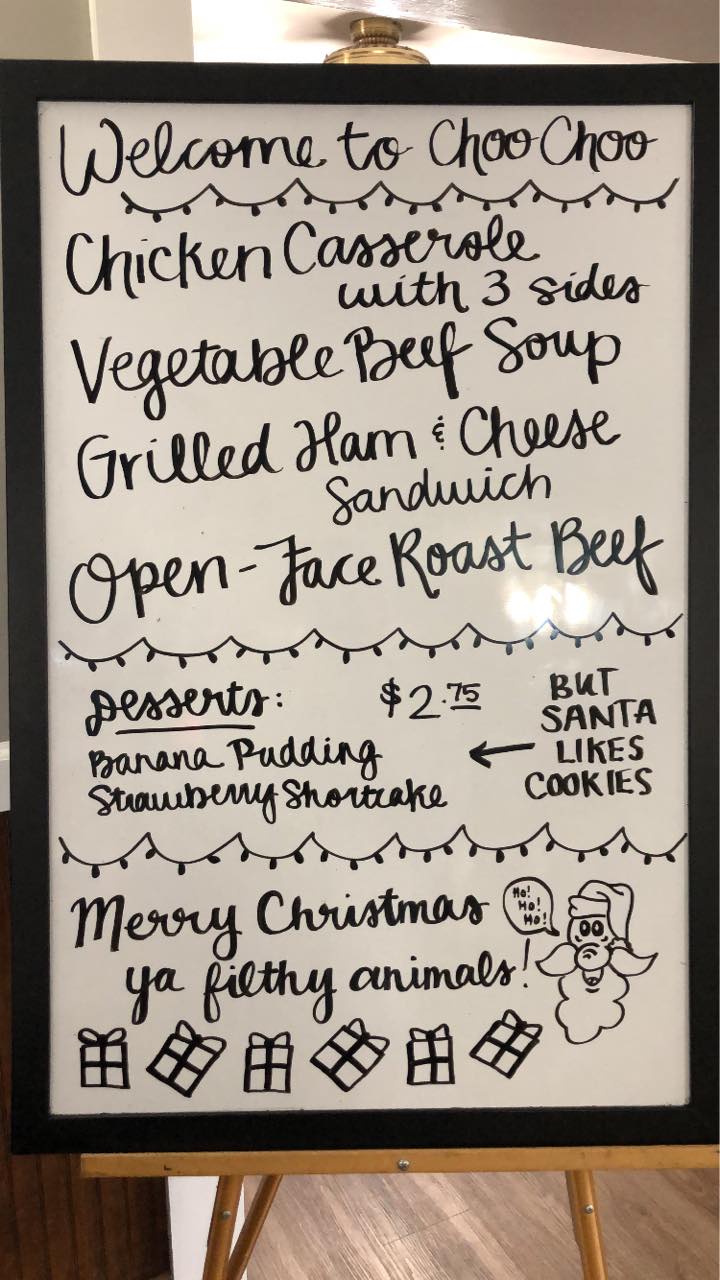 Welcome to Choo Choo
Chicken Casserole
with 3 sides
Vegetable Beef Soup
Grilled Ham & Cheese
Sandwich
Open-Face Roast Beef
Desserts: $2.75
Banana Pudding
Strawberry Shortcake
BUT
SANTA
LIKES
COOKIES
Merry Christmas
ya filthy animals!
Ho!
Ho!
Ho!